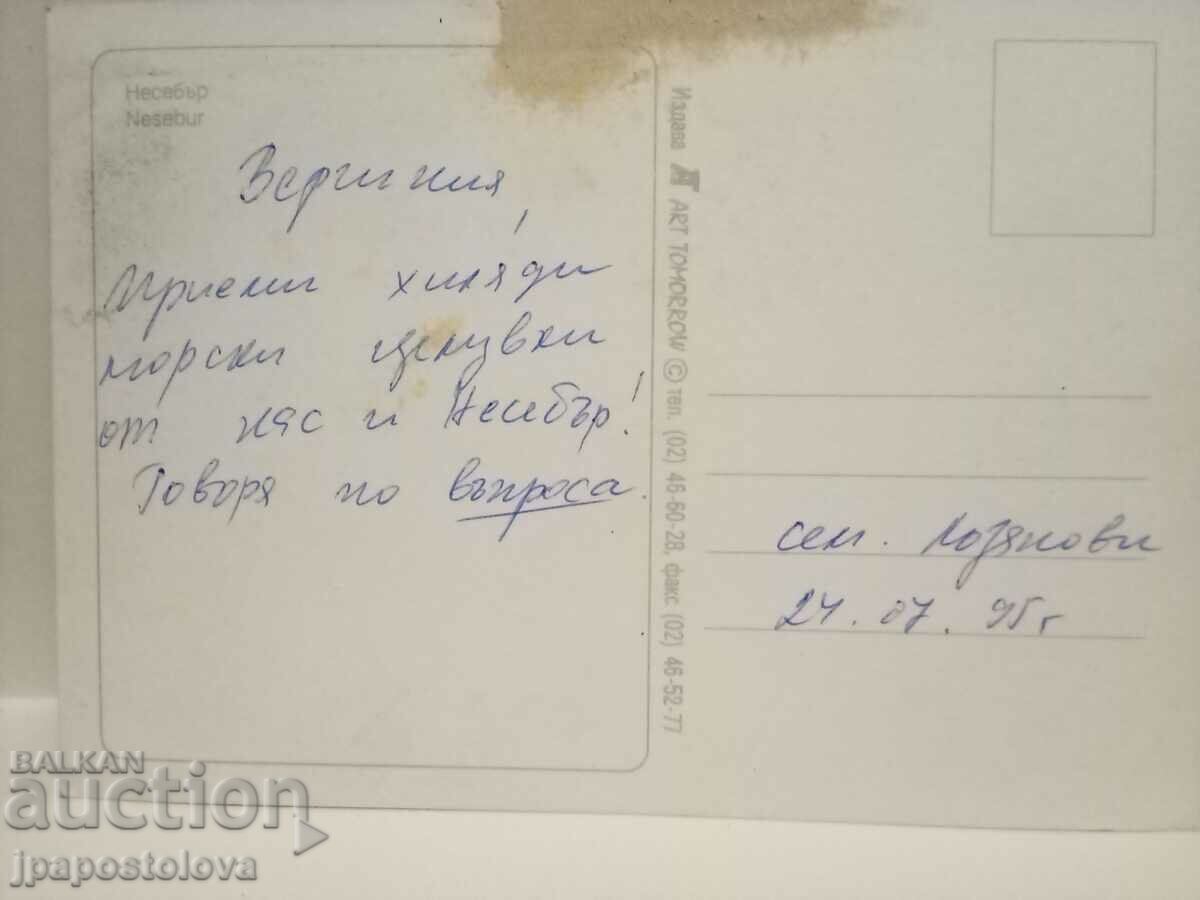 Несебър
Nesebur
Вергиния,
Приеми хиляди
морски целувки
от нас и Несебър!
Говоря по въпроса.
Издава ART TOMORROW © тел. (02) 46-60-28, факс (02) 46-52-77
сем. Лозянови
24.07.95г
BALKAN
auction
jpapostolova